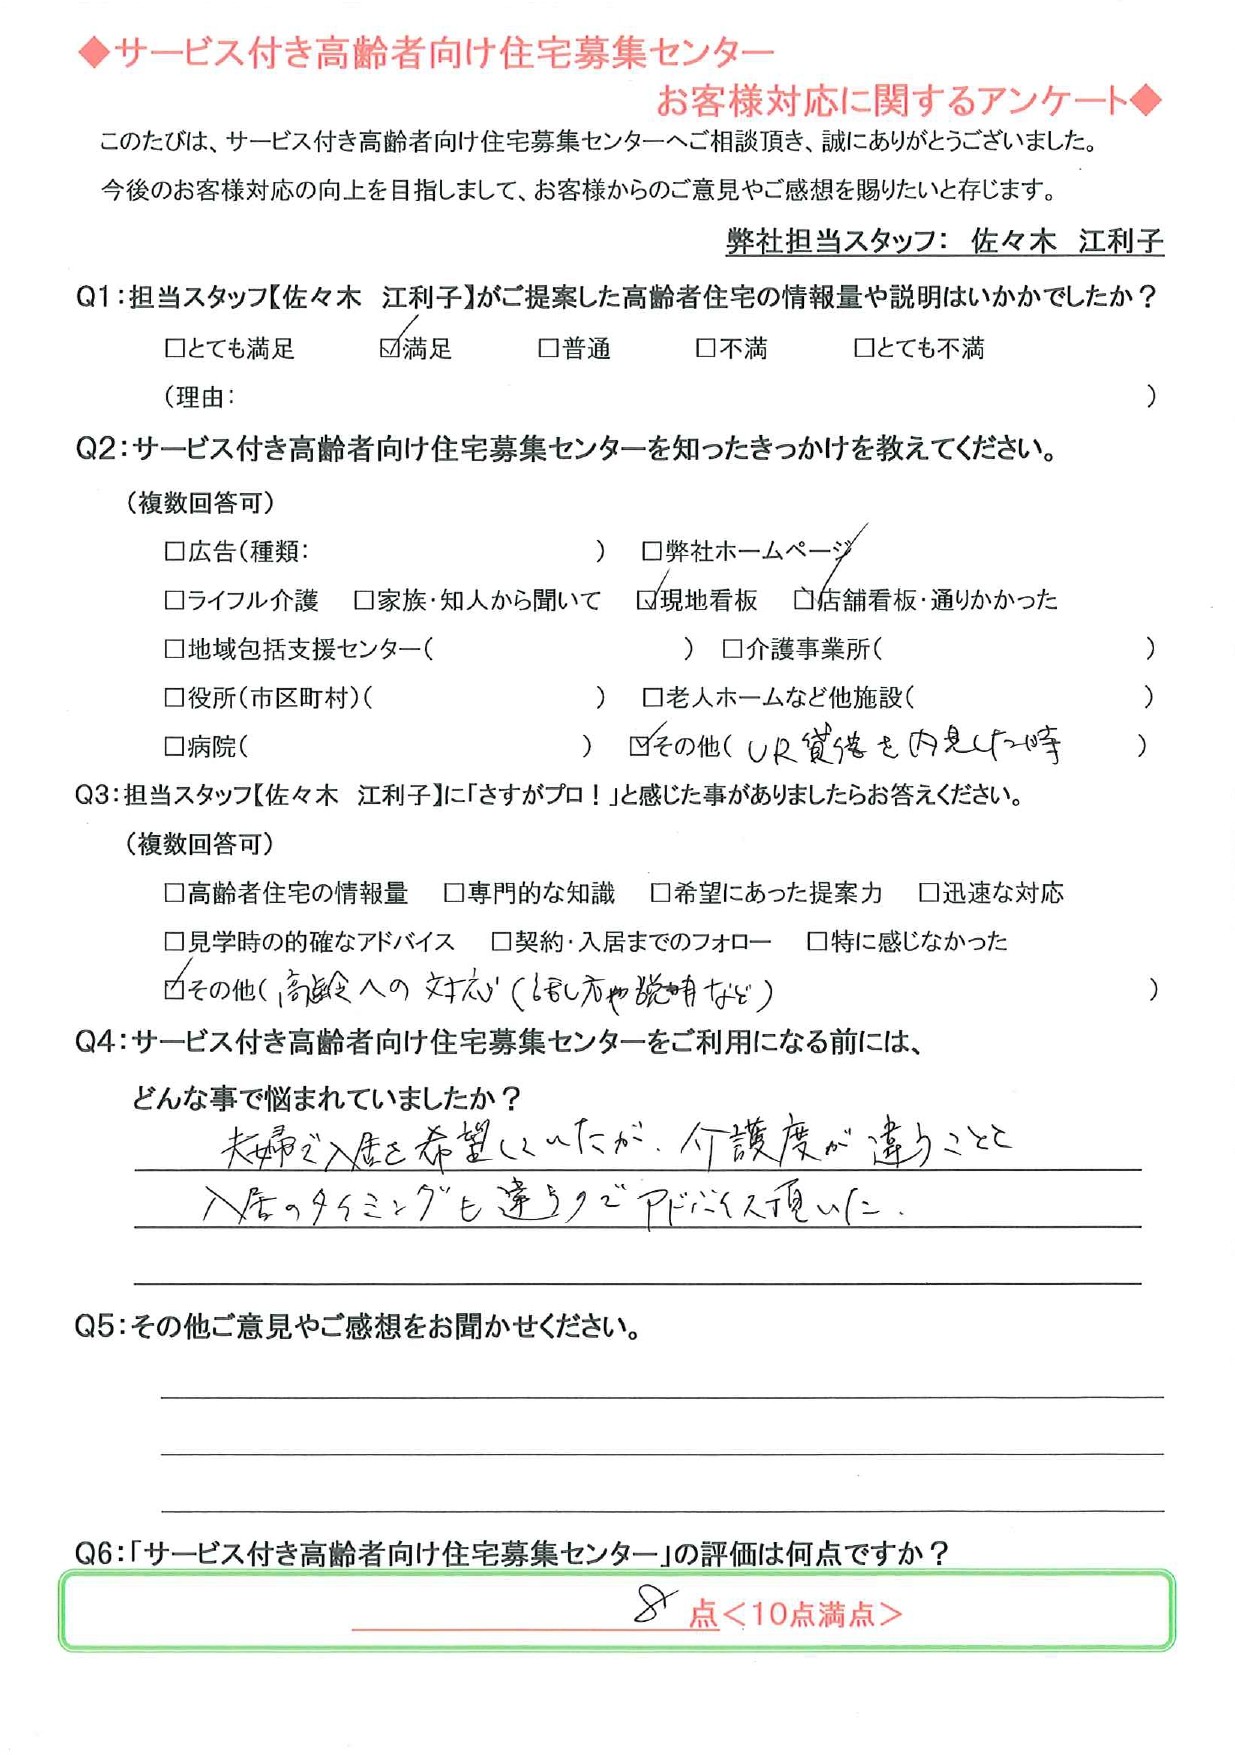 ◆サービス付き高齢者向け住宅募集センター
お客様対応に関するアンケート◆
このたびは、サービス付き高齢者向け住宅募集センターへご相談頂き、誠にありがとうございました。
今後のお客様対応の向上を目指しまして、お客様からのご意見やご感想を賜りたいと存じます。
弊社担当スタッフ： 佐々木 江利子
Q1：担当スタッフ【佐々木 江利子】がご提案した高齢者住宅の情報量や説明はいかかでしたか？
□とても満足 ☑満足 □普通 □不満 □とても不満
（理由： ）
Q2：サービス付き高齢者向け住宅募集センターを知ったきっかけを教えてください。
（複数回答可）
□広告（種類： ） □弊社ホームページ
□ライフル介護 □家族・知人から聞いて ☑現地看板 ☑店舗看板・通りかかった
□地域包括支援センター（ ） □介護事業所（ ）
□役所（市区町村）（ ） □老人ホームなど他施設（ ）
□病院（ ） ☑その他（ UR賃貸を内見した時 ）
Q3：担当スタッフ【佐々木 江利子】に「さすがプロ！」と感じた事がありましたらお答えください。
（複数回答可）
□高齢者住宅の情報量 □専門的な知識 □希望にあった提案力 □迅速な対応
□見学時の的確なアドバイス □契約・入居までのフォロー □特に感じなかった
☑その他（ 高齢への対応（話し方や説明など） ）
Q4：サービス付き高齢者向け住宅募集センターをご利用になる前には、
どんな事で悩まれていましたか？
夫婦で入居を希望していたが、介護度が違うことと
入居のタイミングも違うのでアドバイス頂いた。
Q5：その他ご意見やご感想をお聞かせください。
Q6：「サービス付き高齢者向け住宅募集センター」の評価は何点ですか？
8 点＜10点満点＞